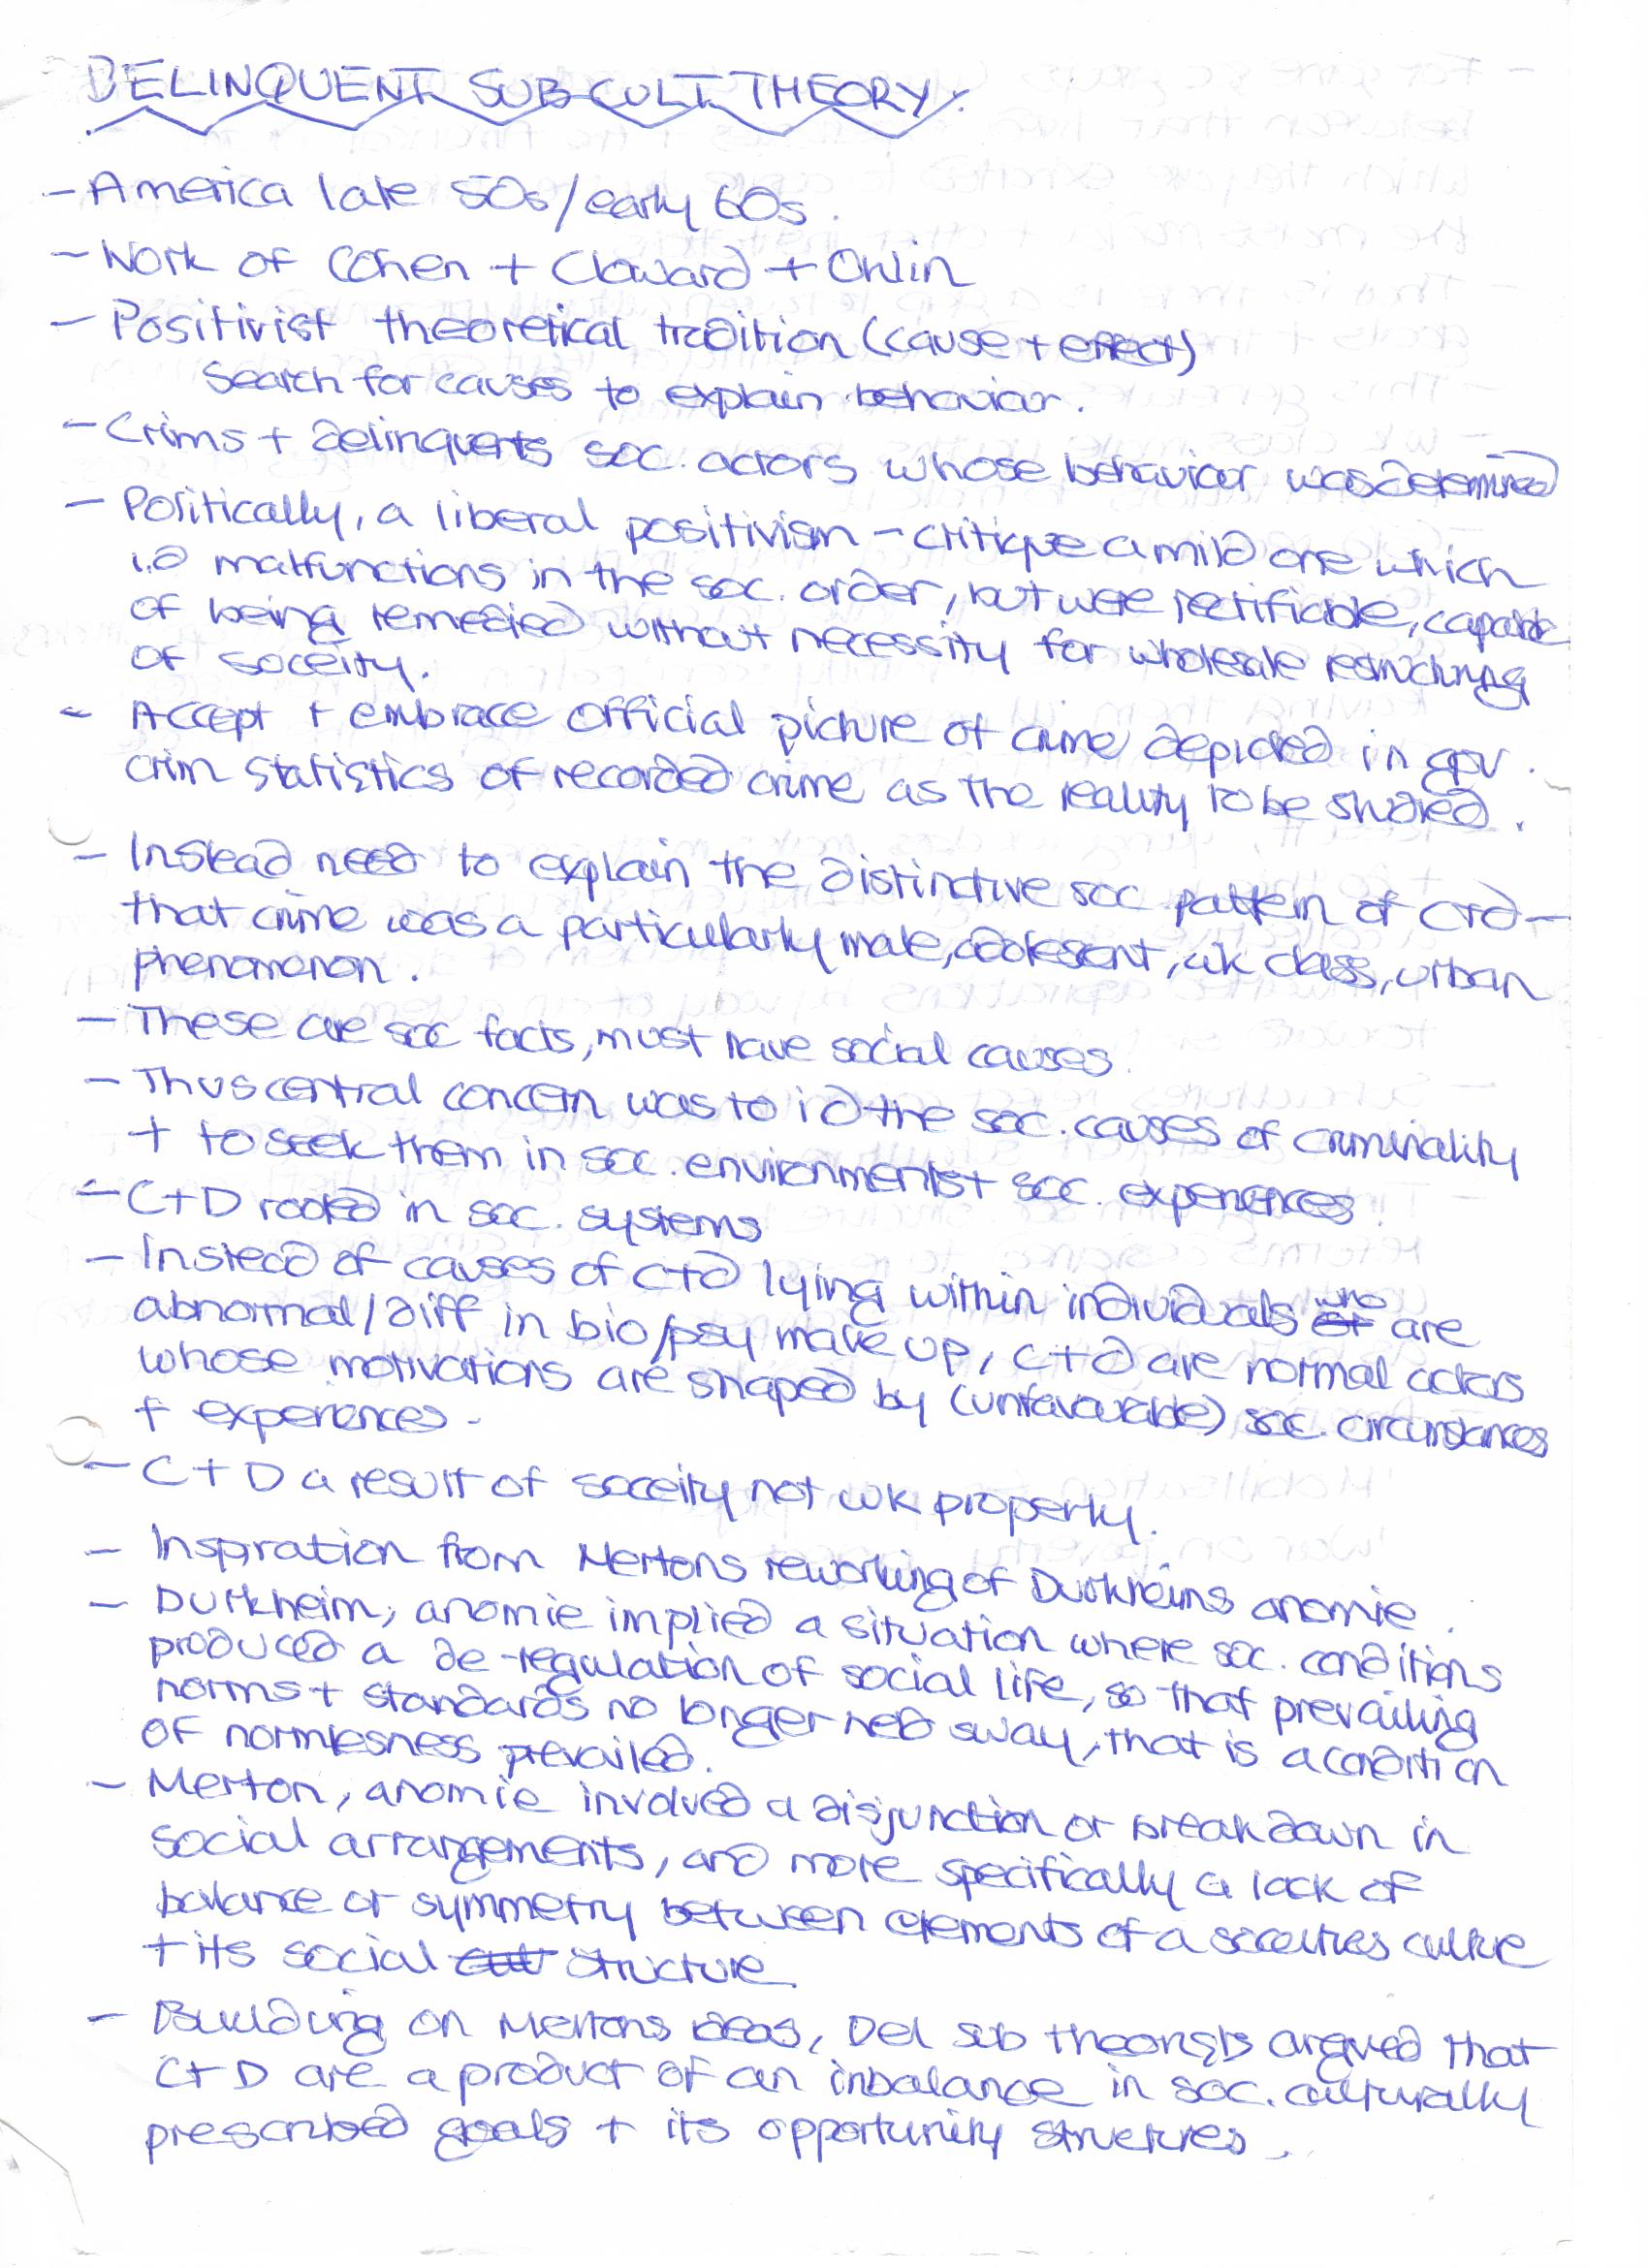 DELINQUENT SUB CULT THEORY.
- America late 50s/early 60s.
- Work of Cohen + Cloward + Ohlin
- Positivist theoretical tradition (cause + effect)
Search for causes to explain behaviour.
- Crims + delinquents soc. actors whose behaviour was determined
- Politically, a liberal positivism - critique a mild one which
i.d malfunctions in the soc. order, but were rectifiable, capable
of being remedied without necessity for wholesale restructuring
of soceity.
- Accept + embrace official picture of crime depicted in gov.
crim statistics of recorded crime as the reality to be studied.
- Instead need to explain the distinctive soc pattern of c+d -
that crime was a particularly male, adolescent, wk class, urban
phenomenon.
- These are soc facts, must have social causes.
- Thus central concern was to id the soc. causes of criminality
+ to seek them in soc. environments + soc. experiences.
- C+D rooted in soc. systems
- Instead of causes of c+d lying within individuals who are
abnormal/diff in bio/psy make up, c+d are normal actors
whose motivations are shaped by (unfavourable) soc. circumstances
+ experiences.
- C+D a result of soceity not wk properly.
- Inspiration from Mertons reworking of Durkheims anomie.
- Durkheim; anomie implied a situation where soc. conditions
produced a de-regulation of social life, so that prevailing
norms + standards no longer held sway, that is a condition
of normlesness prevailed.
- Merton, anomie involved a disjunction or breakdown in
social arrangements, and more specifically a lack of
balance or symmetry between elements of a soceities culture
+ its social structure.
- Building on Mertons ideas, Del sub theorists argued that
C+D are a product of an inbalance in soc. culturally
prescribed goals + its opportunity structures.